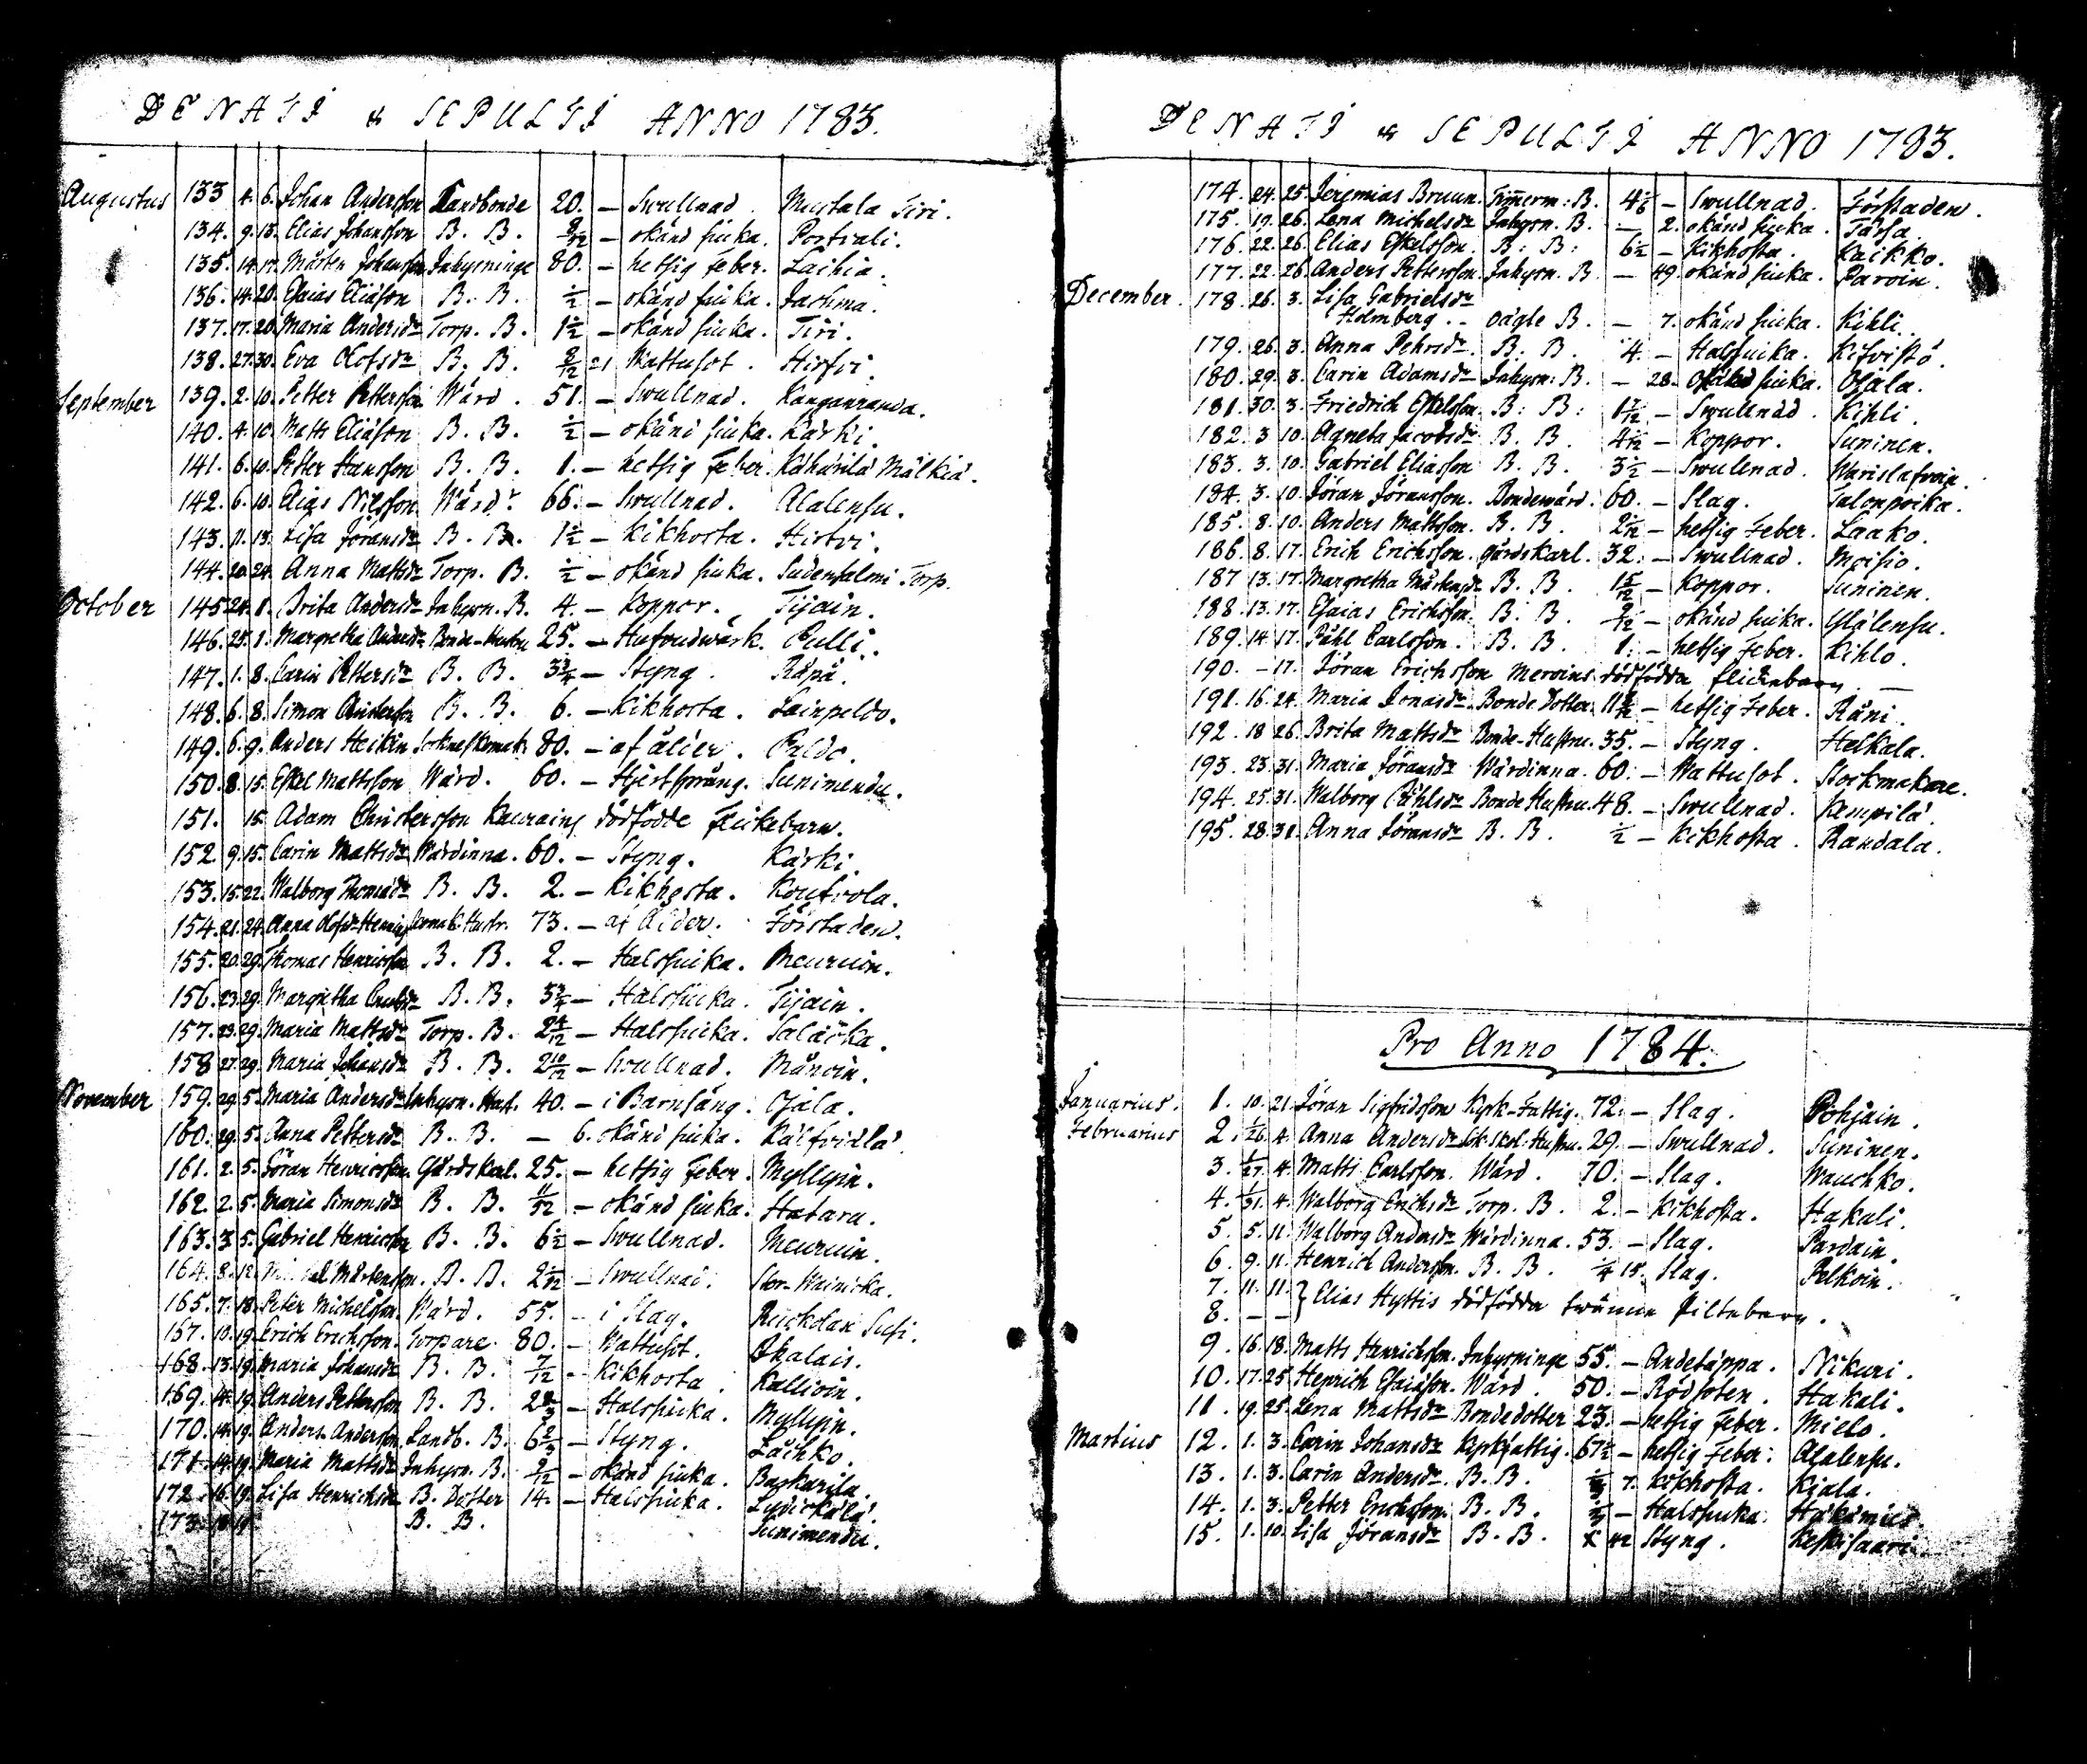 DENATI & SEPULTI ANNO 1783.
Augustus 133 4. 6. Johan Andersson Landbonde 20. – Swullnad. Mustala Tiri.
134. 9. 13. Elias Johansson B. B. 2/12 – okänd siuka. Portvali.
135. 14. 17. Mårten Johansson Inhysninge 80. – hetsig Feber. Laihia.
136. 14. 20. Esaias Eliasson B. B. ½ – okänd siuka. Jaehma.
137. 17. 20. Maria Andersdr Torp. B. 1½ – okänd siuka. Tiri.
138. 27. 30. Eva Olofsdr B. B. 2/12 21 Wattusot. Hirfvi.
September 139. 2. 10. Petter Pettersson Wärd. 51. – Swullnad. Kanganranda.
140. 4. 10. Matts Eliasson B. B. ½ – okänd siuka. Kärki.
141. 6. 10. Petter Hansson B. B. 1. – hetsig Feber. Kähärilä Mälkiä.
142. 6. 10. Elias Nilsson Wärdr 66. – Swullnad. Alalensu.
143. 11. 13. Lisa Jöransdr B. B. 1½ – Kikhosta. Hirfvi.
144. 20. 24. Anna Mattsdr Torp. B. ½ – okänd siuka. Sudensalmi Torp.
October 145 24. 1. Brita Andersdr Inhysn. B. 4. – Koppor. Tijain.
146. 25. 1. Margretha Andersdr Bonde-Hustru 25. – Hufvudwärk. Pulli.
147. 1. 8. Carin Pettersdr B. B. 3¾ – Styng. Räpä.
148. 6. 8. Simon Andersson B. B. 6. – Kikhosta. Lainpeldo.
149. 6. 9. Anders Heikin 80. – af ålder. Peldo.
150. 8. 15. Eskel Mattsson Wärd. 60. – Hjertsprång. Sunimendu.
151. 15. Adam Christersson Kaurains dödfödde Flickebarn.
152 9. 15. Carin Mattsdr Wärdinna. 60. – Styng. Kärki.
153. 15. 22. Walborg Thomasdr B. B. 2. – Kikhosta. Koufvola.
154. 21. 24. Anna Olofsdr 73. – af Ålder. Förstaden.
155. 20. 29. Thomas Henricsson B. B. 2. – Halssiuka. Meuruin.
156. 23. 29. Margretha B. B. 3¾ – Halssiuka. Tijain.
157. 23. 29. Maria Mattsdr Torp. B. 2 4/12 – Halssiuka. Salaöka.
158 27. 29. Maria Johansdr B. B. 2 10/12 – Swullnad. Månoin.
November 159. 29. 5. Maria Andersdr Inhysn. Hust. 40. – i Barnsäng. Ojala.
160. 29. 5. Anna Pettersdr B. B. – 6. okänd siuka. Kälfvidlä.
161. 2. 5. Jöran Henricsson. Gårdskarl. 25. – hetsig Feber. Myllyin.
162. 2. 5. Maria Simonsdr B. B. 11/12 – okänd siuka. Hataru.
163. 3. 5. Gabriel Henricsson B. B. 6½ – Swullnad. Meuruin.
164. 8. 12. Michel Mårtensson. B. B. 2 1/12 – Swullnad. Stor-Wainicka.
165. 7. 18. Peter Michelsson. Wärd. 55. – i Slag. Ruokolax Susi.
167. 10. 19. Erich Erichsson. Torpare. 80. – Wattusot. Okalais.
168. 13. 19. Maria Johansdr B. B. 7/12 – Kikhosta. Kallioin.
169. 14. 19. Anders Pettersson B. B. 2⅔ – Halssiuka. Myllyin.
170. 14. 19. Anders Andersson. Landb. B. 6⅔ – Styng. Laihko.
171. 14. 19. Maria Mattsdr Inhysn. B. 2/12 – okänd siuka. Baskarila.
172. 16. 19. Lisa Henricsdr B. Dotter 14. – Halssiuka. Lydickälä.
173. 18. 19. B. B. Sunimendu.
DENATI & SEPULTI ANNO 1783.
174. 24. 25. Jeremias Bruun. Timmerm: B. 4 1/6 – Swullnad. Förstaden.
175. 17. 26. Lena Michelsdr Inhysn. B. – 2. okänd siuka. Tarsa.
176. 22. 26. Elias Eskelsson. B: B: 6½ – Kikhosta. Kaikko.
177. 22. 26. Anders Pettersson. Inhysn. B. – 49. okänd siuka. Paroin.
December. 178. 26. 3. Lisa Gabrielsdr
Holmberg. – oägte B. – 7. okänd siuka. Kihli.
179. 26. 3. Anna Pehrsdr. B. B. 4 – Halssiuka. Kitvistö.
180. 29. 3. Carin Adamsdr Inhysn: B. – 28. Okänd siuka. Ojala.
181. 30. 3. Friedrich Eskelsson. B: B: 1 7/12 – Swullnad. Kihli.
182. 3 10. Agneta Jacobsdr B. B. 4 1/12 – Koppor. Suninen.
183. 3. 10. Gabriel Eliasson B. B. 3½ – Swullnad. Warislafvain.
184. 3. 10. Jöran Jöransson. Bondewärd. 60. – Slag. Talonpoika.
185. 8. 10. Anders Mattsson. B. B. 2 1/12 – hetsig Feber. Laako.
186. 8. 17. Erich Erichsson. gårdskarl. 32. – Swullnad. Moisio.
187 13. 17. Margretha Mårtensdr B. B. 1 5/12 – Koppor. Suninen.
188. 13. 17. Esaias Erichsson. B. B. 2/12 – okänd siuka. Ylälensu.
189. 14 17. Påhl Carlsson. B. B. 1. – hetsig Feber. Kihlo.
190. – 17. Jöran Erichsson Meroins dödfödda flickebarn. –
191. 16. 24. Maria Jonasdr. Bonde Dotter. – hetsig Feber. Räni.
192. 18 26. Brita Mattsdr Bonde-Hustru. 35. – Styng. Helkala.
193. 23. 31. Maria Jöransdr Wärdinna. 60. – Wattusot. Stockmakare.
194. 25. 31. Walborg Påhlsdr Bonde Hustru. 48. – Swullnad. Kempilä.
195. 28. 31. Anna Jöransdr B. B. ½ – Kikhosta. Randala.
Pro Anno 1784.
Januarius. 1. 10. 21. Jöran Sigfridsson Kyrk-Fattig. 72. – Slag. Pohjain.
Februarius 2. 1/26. 4. Anna Andersdr Sok-Skol-Hustru. 29. – Swullnad. Suninen.
3. 1/27. 4. Matts Carlsson. Wärd. 70. – Slag. Wauchko.
4. 1/31. 4. Walborg Erichsdr Torp. B. 2. – Kikhosta. Hakali.
5. 5. 11. Walborg Andersdr Wärdinna. 53. – Slag. Pardain.
6. 9. 11. Henrich Andersson. B. B. ¼ 15. Slag. Pelkoin.
7. 11. 11. } Elias Hyttis dödfödda twänne Piltebarn.
8. – –
9. 16. 18. Matts Henrichsson. Inhysninge 55. – Andetäppa. Nikuri.
10. 17. 25 Henrich Esaiasson. Wärd. 50. – Rödsoten. Hakali.
11. 19. 25. Lena Mattsdr Bondedotter 23. – hetsig Feber. Mielo.
Martius 12. 1. 3. Carin Johansdr Kyrkfattig. 67½ – hetsig Feber. Alalensu.
13. 1. 3. Carin Andersdr. B. B. 7. Kikhosta. Kiala.
14. 1. 3. Petter Erichsson. B. B. – Halssiuka. Hakamies.
15. 1. 10. Lisa Jöransdr B. B. x 42 Styng. Keskisaari.